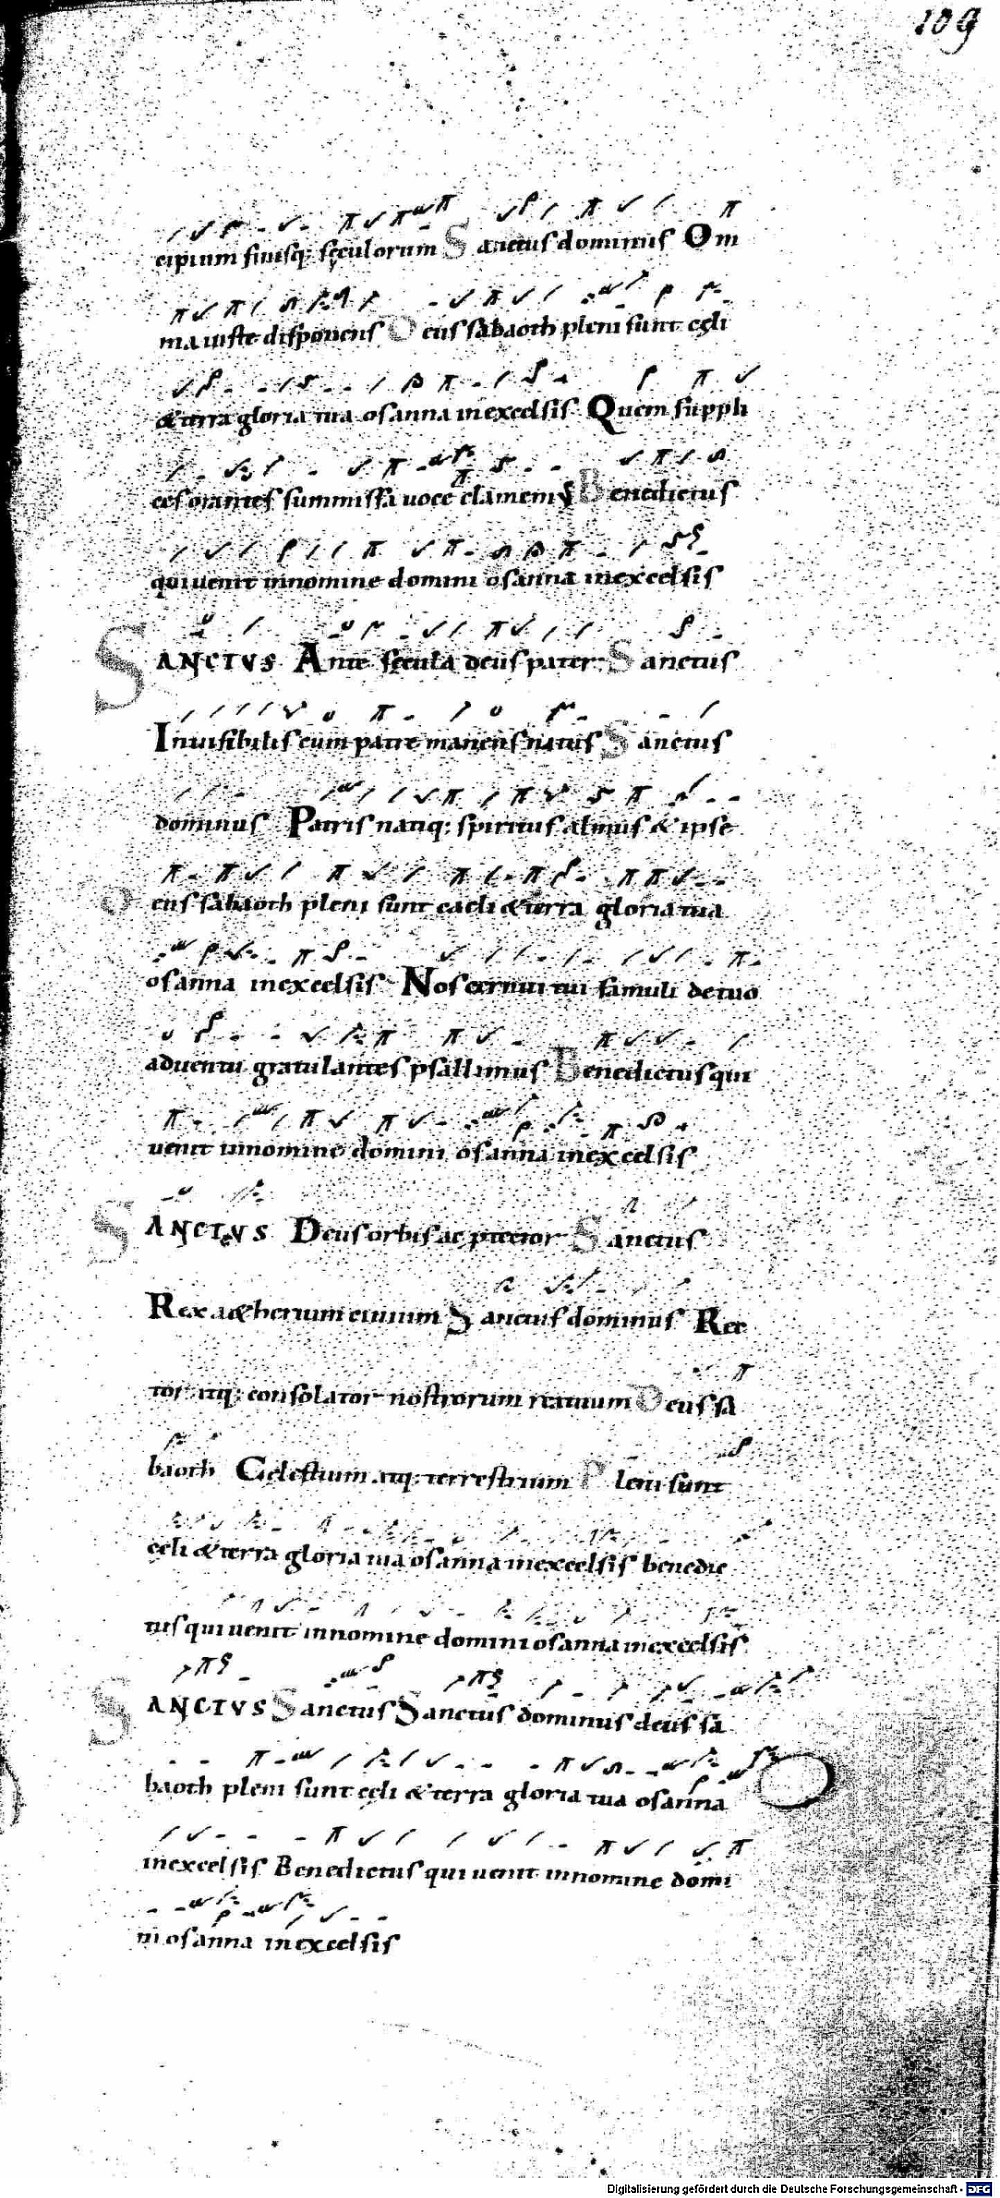 109
cipium finisq; sęculorum Sanctus dominus Om
nia iuste disponens Deus sabaoth pleni sunt cęli
& terra gloria tua osanna in excelsis Quem suppli
ces orantes summissa uoce clamemus Benedictus
qui uenit in nomine domini osanna in excelsis
SANCTVS Ante sęcula deus pater Sanctus
Inuisibilis cum patre manens natus Sanctus
dominus Patris natiq; spiritus almus & ipse
Deus sabaoth pleni sunt caeli & terra gloria tua
osanna in excelsis Nos cernui tui famuli de tuo
aduentu gratulantes psallimus Benedictus qui
uenit in nomine domini osanna in excelsis
SANCTVS Deus orbis ac Sanctus
Rex ciuium Sanctus dominus Rec
tor atq; consolator nostrorum reatuum Deus sa
baoth Celestium atq; terrestrium Pleni sunt
cęli & terra gloria tua osanna in excelsis benedic
tus qui uenit in nomine domini osanna in excelsis
SANCTVS Sanctus Sanctus dominus deus sa
baoth pleni sunt cęli & terra gloria tua osanna
in excelsis Benedictus qui uenit in nomine domi
ni osanna in excelsis
Digitalisierung gefördert durch die Deutsche Forschungsgemeinschaft - DFG